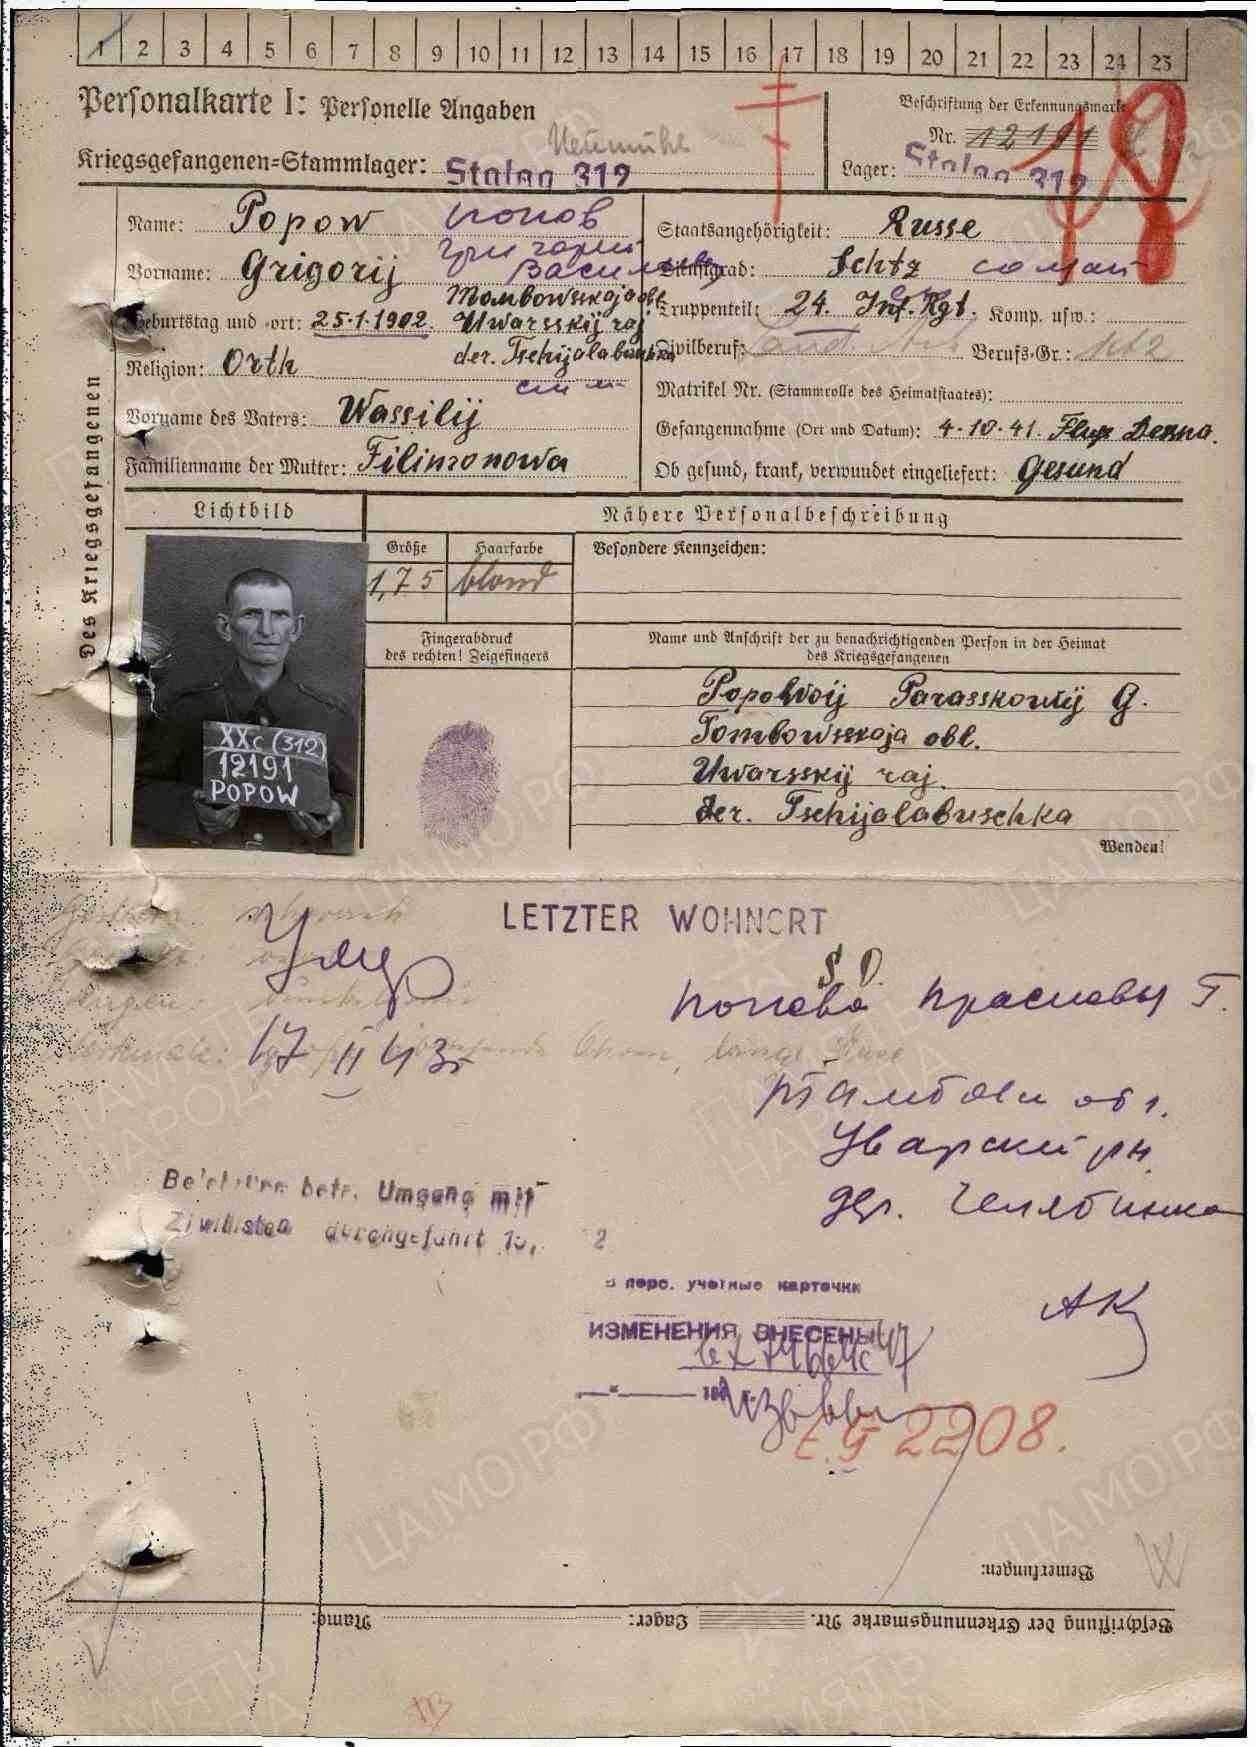 1 2 3 4 5 6 7 8 9 10 11 12 13 14 15 16 17 18 19 20 21 22 23 24 25
Personalkarte I: Personelle Angaben
Beschriftung der Erkennungsmarke
Nr. 12191
Neumühl
Kriegsgefangenen=Stammlager: Stalag 312
Lager: Stalag 312
18
Des Kriegsgefangenen
Name: Popow Попов
Vorname: Grigorij Григорий
Василь
Geburtstag und -ort: 25.1.1902. Tombowskaja obl
Uwarsskij raj
der. Tschijalabuschka
Religion: Orth
Vorname des Vaters: Wassilij
Familienname der Mutter: Filimonowa
Staatsangehörigkeit: Russe
Dienstgrad: Schtz солдат
Truppenteil: 24. Inf. Rgt. Komp. usw.:
Zivilberuf: Land. Arb Berufs-Gr.:
Matrikel Nr. (Stammrolle des Heimatstaates):
Gefangennahme (Ort und Datum): 4.10.41. Fluss Desna.
Ob gesund, krank, verwundet eingeliefert: Gesund
Lichtbild
XXc (312)
12191
POPOW
Nähere Personalbeschreibung
Größe Haarfarbe Besondere Kennzeichen:
1,75 blond
Fingerabdruck
des rechten! Zeigefingers
Name und Anschrift der zu benachrichtigenden Person in der Heimat
des Kriegsgefangenen
Popowoij Parasskowij G.
Tombowskaja obl.
Uwarsskij raj.
der. Tschijalabuschka
Wenden!
LETZTER WOHNORT
S.D.
Умер
17 II 43г
Попова Прасковья Г.
Тамбовск обл.
Уварский рн.
дер. Челябинка
betr. Umgang mit
Zivilisten durchgeführt
В перс. учетные карточки
ИЗМЕНЕНИЯ ВНЕСЕНЫ
АК
2208.
Bemerkungen:
Name: Lager: Beschriftung der Erkennungsmarke Nr.